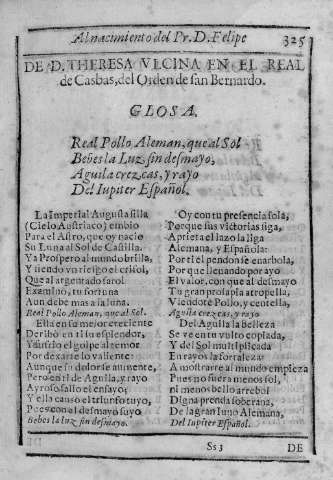 Al nacimiento del Pr. D. Felipe 325
DE D. THERESA VLCINA EN EL REAL
de Casbas, del Orden de san Bernardo.
GLOSA.
Real Pollo Aleman, que al Sol
Bebes la Luz sin desmayo,
Aguila crezcas, y rayo
Del Iupiter Español.
La Imperial Augusta silla
(Cielo Austriaco) embio
Para el Astro, que oy nacio
Su Luna al Sol de Castilla.
Ya Prospero al mundo brilla,
Y siendo vn riesgo el crisol,
Que al argentado farol
Examinò, tu fortuna
Aun debe mas a la luna.
Real Pollo Aleman, que al Sol.
Ella en su mejor creciente
Deribò en ti su esplendor,
Y sufriò el golpe al temor
Por dexarte lo valiente:
Aunque su dolor se aumente,
Pero en ti de Aguila, y rayo
Ayroso fallò el ensayo,
Y ella causò el triunfo tuyo,
Pues con al desmayo suyo
Bebes la luz sin desmayo.
Oy con tu presencia sola,
Porque sus victorias siga,
Aprieta el lazo la liga
Alemana, y Española:
Por ti el pendon se enarbola,
Por que llenando por ayo
El valor, con que al desmayo
Tu gran prosapia atropella,
Viendote Pollo, y centella,
Aguila crezcas, y rayo
Del Aguila la Belleza
Se ve en tu vulto copiada,
Y del Sol multiplicada
En rayos la fortaleza:
A mostrarte al mundo empieza
Pues no fuera menos sol,
ni menos bello arrebol
Digna prenda soberana,
De la gran Iuno Alemana,
Del Iupiter Español.
Ss 3 DE